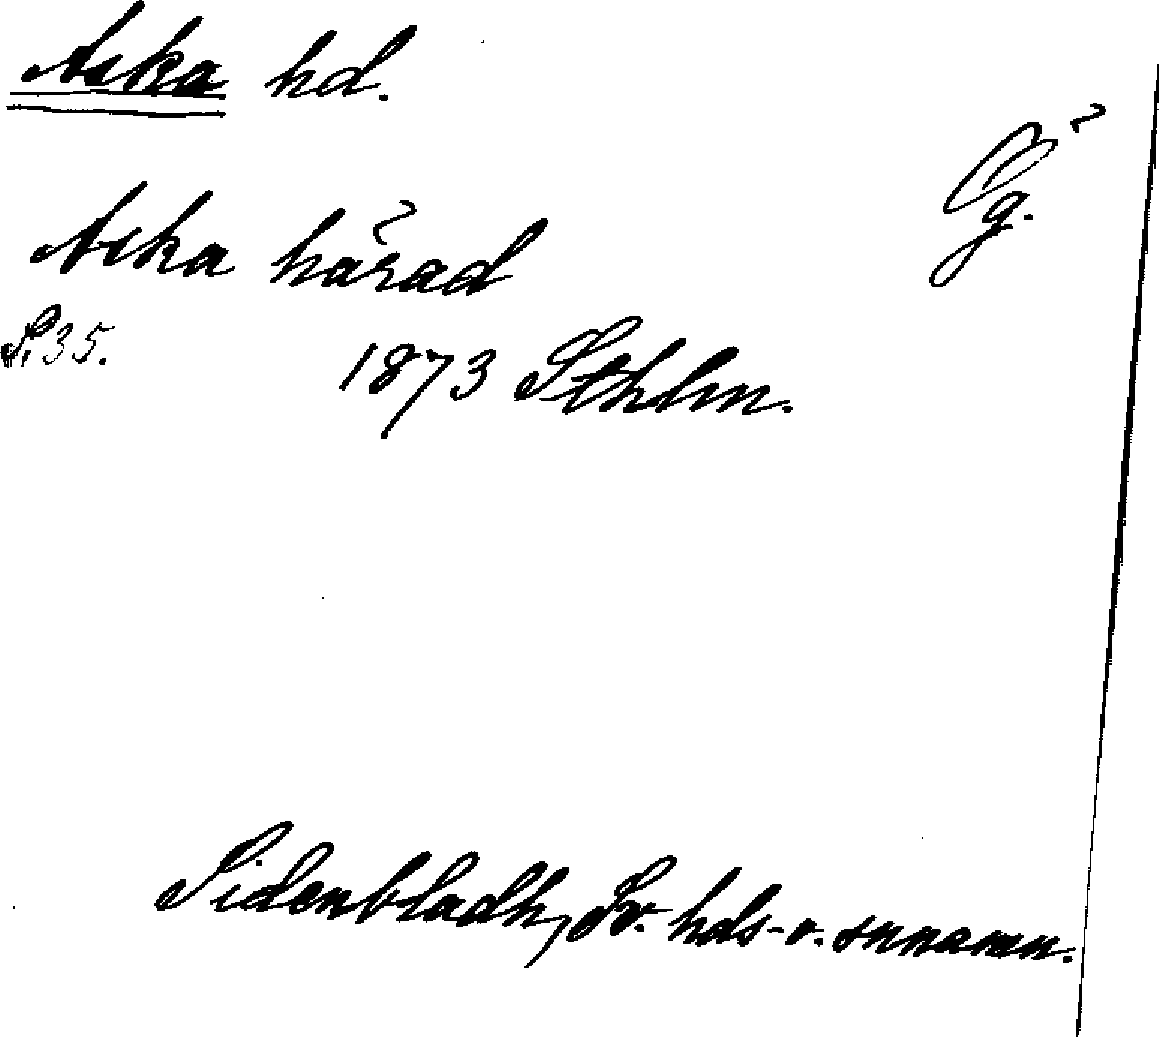 Aska hd.
Ög.
Aska härad
S. 35.
1873 Sthlm.
Sidenbladh, Sv. hds- o. snnamn.